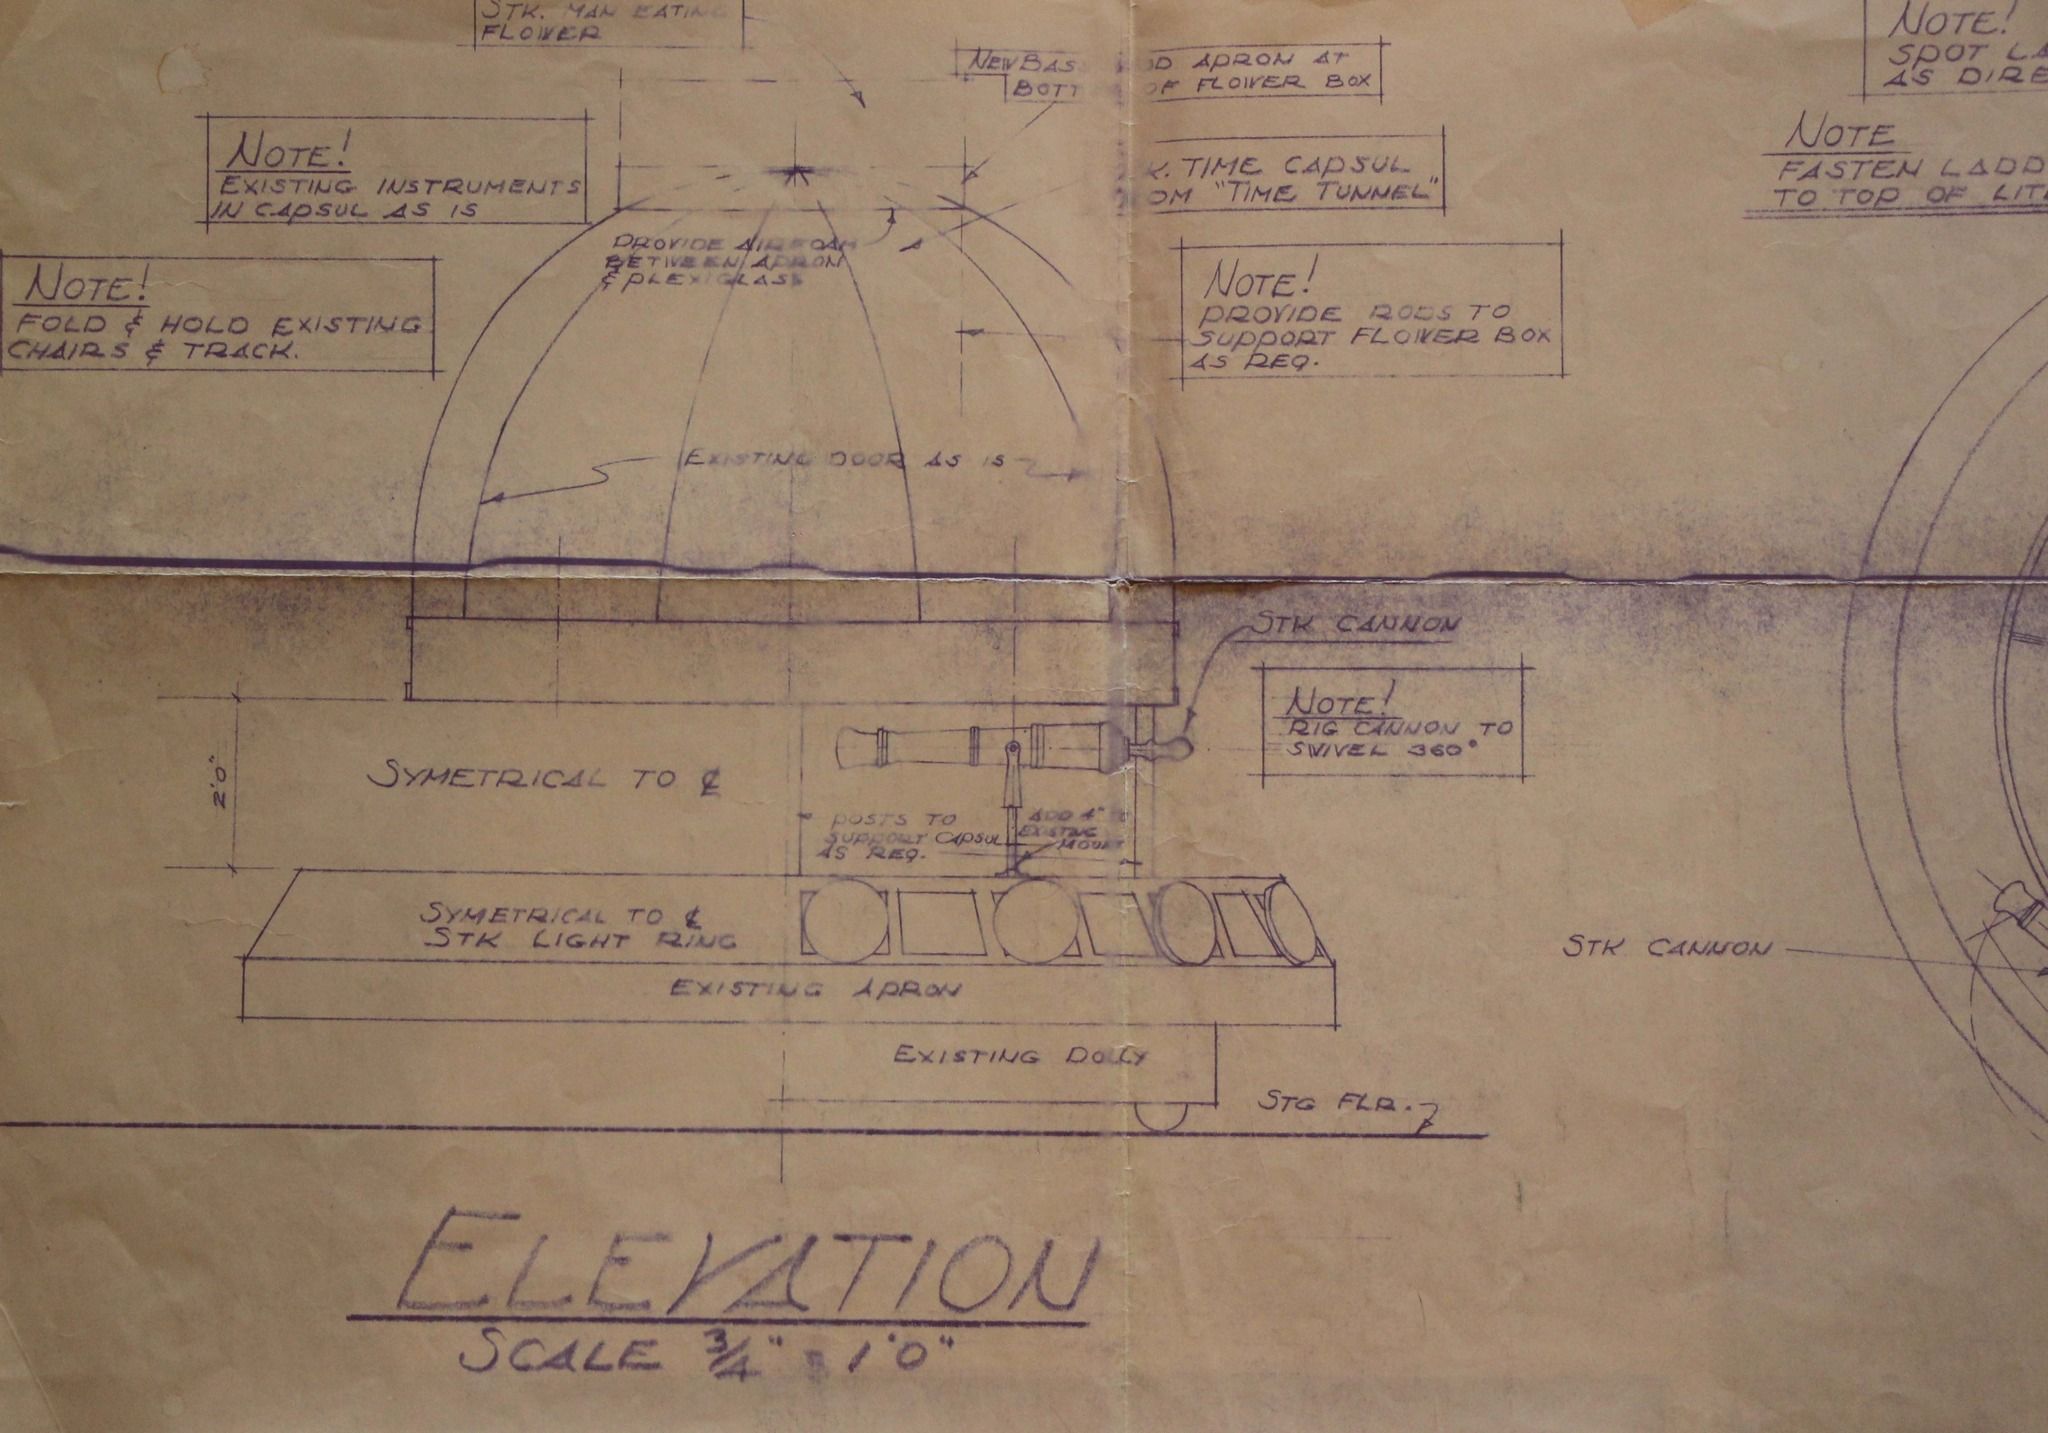 STK. MAN EATING
FLOWER
NEW BAS D APRON AT
BOTT OF FLOWER BOX
NOTE!
SPOT LA
AS DIRE
NOTE!
EXISTING INSTRUMENTS
IN CAPSUL AS IS
K. TIME CAPSUL
OM "TIME TUNNEL"
NOTE
FASTEN LADD
TO TOP OF LITE
PROVIDE AIRFOAM
BETWEEN APRON
& PLEXIGLASS
NOTE!
FOLD & HOLD EXISTING
CHAIRS & TRACK.
NOTE!
PROVIDE RODS TO
SUPPORT FLOWER BOX
AS REQ.
EXISTING DOOR AS IS
STK CANNON
NOTE!
RIG CANNON TO
SWIVEL 360°
2'0"
SYMETRICAL TO ℄
POSTS TO
SUPPORT CAPSUL
AS REQ.
ADD 4" TO
EXISTING
MOUNT
SYMETRICAL TO ℄
STK LIGHT RING
STK CANNON
EXISTING APRON
EXISTING DOLLY
STG FLR.
ELEVATION
SCALE 3/4" = 1'0"